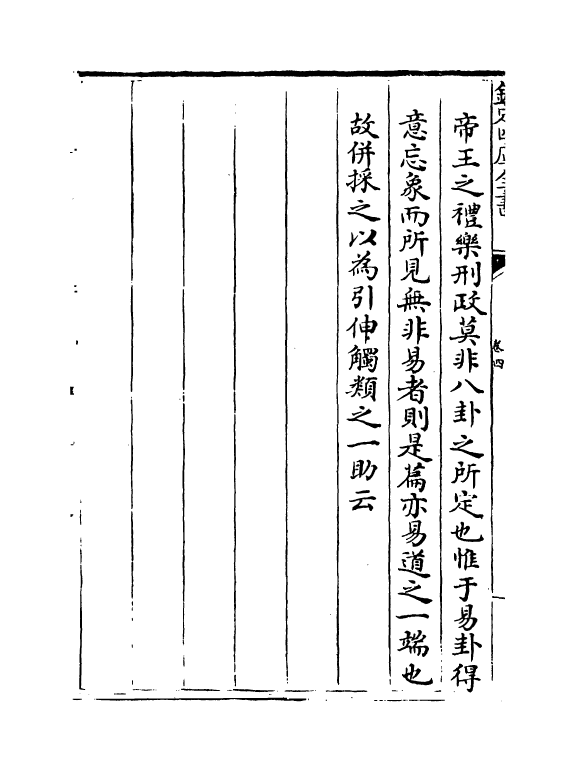 欽定四庫全書
卷四
帝王之禮樂刑政莫非八卦之所定也惟于易卦得
意忘象而所見無非易者則是篇亦易道之一端也
故併採之以為引伸觸類之一助云